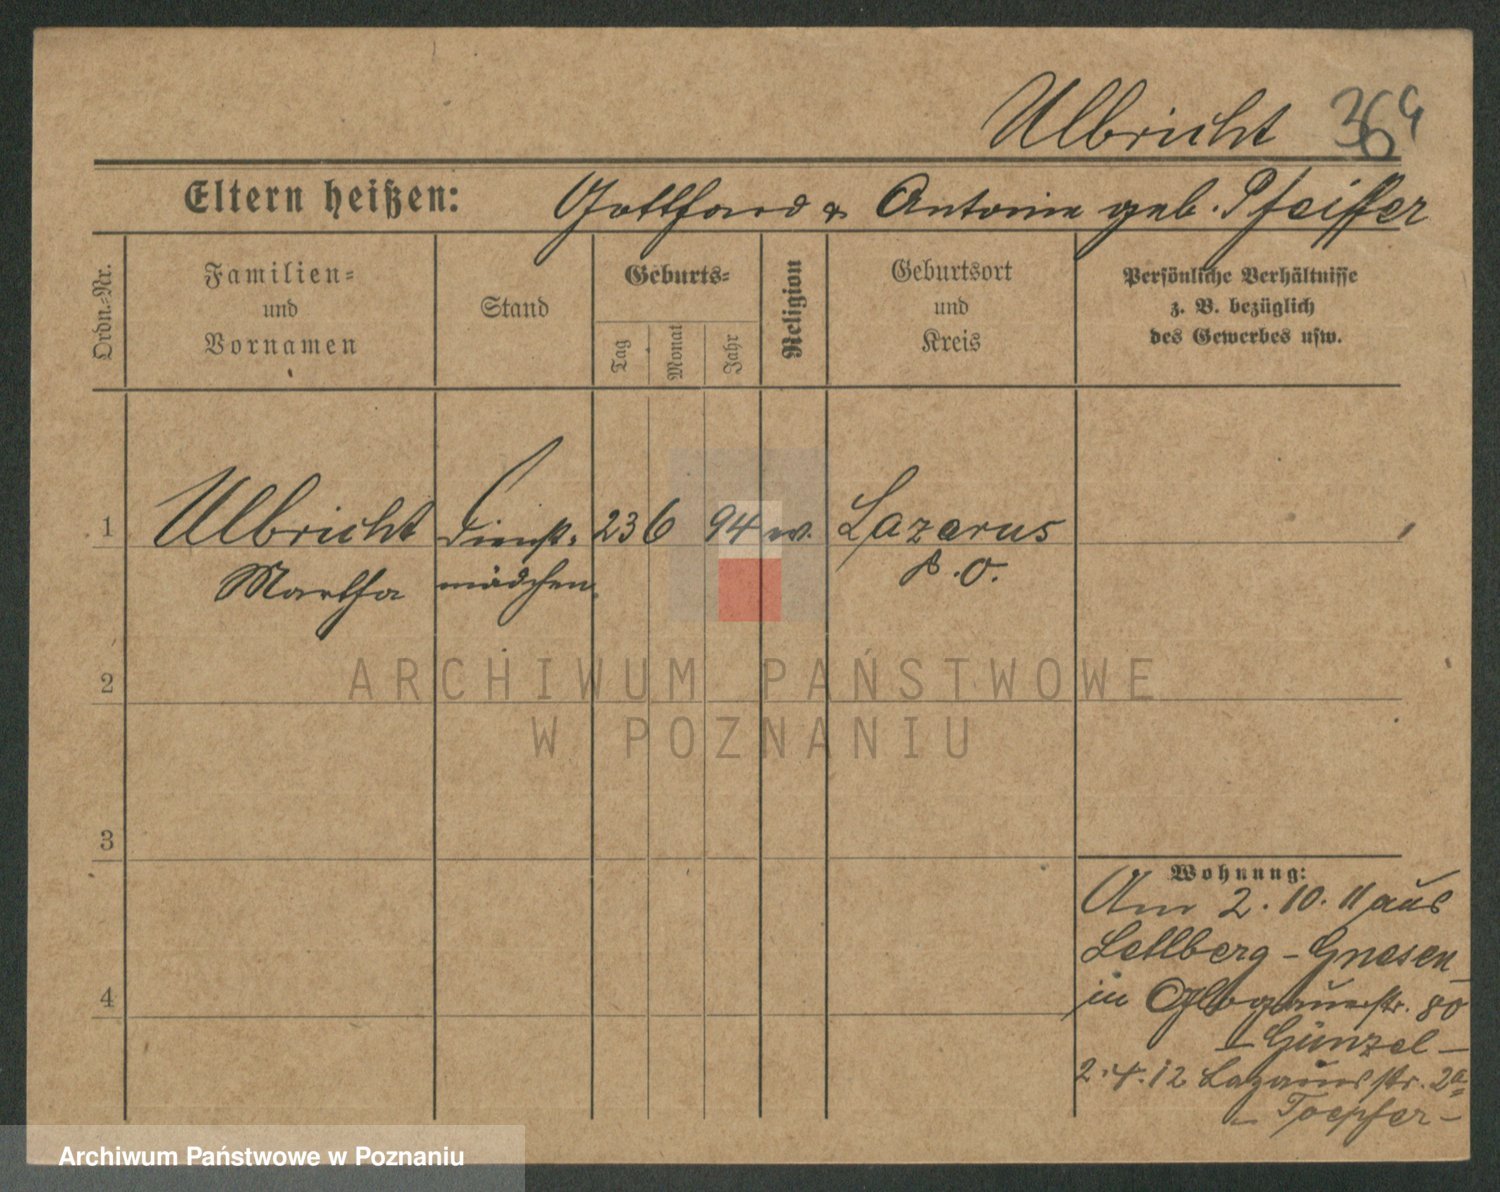 Ulbricht 36a
Eltern heißen: Gotthard & Antonie geb. Pfeiffer
Ordn.-Nr.
Familien-
und
Vornamen
Stand
Geburts-
Tag
Monat
Jahr
Religion
Geburtsort
und
Kreis
Persönliche Verhältnisse
z. B. bezüglich
des Gewerbes usw.
1 Ulbricht Dienst- 23 6 94 ev. Lazarus
Martha mädchen P. O.
2
3
4
Wohnung:
Am 2. 10. 11 aus
Letlberg - Gnesen
in Glogauerstr. 80
- Günzel -
2. 4. 12 Lazarusstr. 2a
- Toepfer -
ARCHIWUM PAŃSTWOWE
W POZNANIU
Archiwum Państwowe w Poznaniu